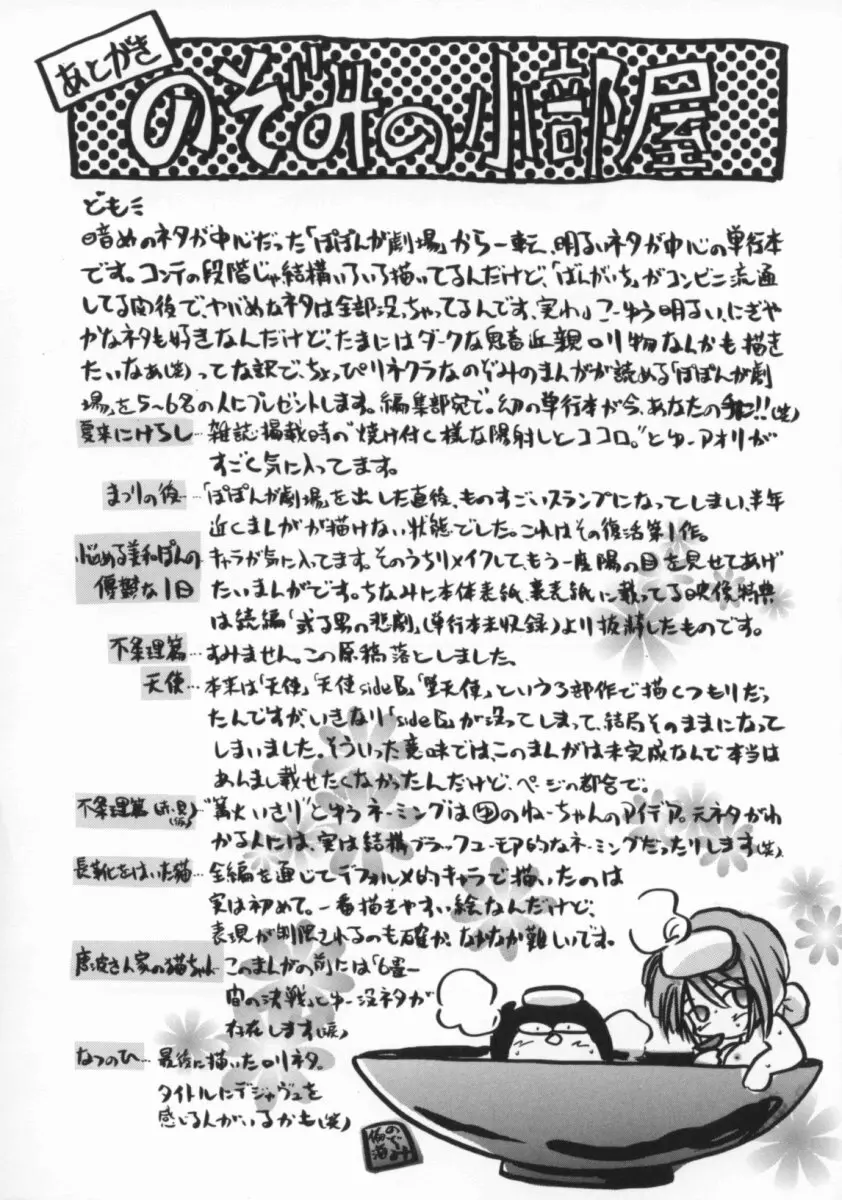 あとがき
のぞみの小部屋
ども
暗めのネタが中心だった「ぽぽんが劇場」から一転、明るいネタが中心の単行本
です。コンテの段階じゃ結構いろいろ描いてるんだけど、「ばんがいち」がコンビニ流通
してる関係で、ヤバめなネタは全部没っちゃってるんです、実わ」こーゆう明るい、にぎや
かなネタも好きなんだけど、たまにはダークな鬼畜近親ロリ物なんかも描き
たいなあ(笑)ってな訳で、ちょっぴりネクラなのぞみのまんがが読める「ぽぽんが劇
場」を5〜6名の人にプレゼントします。編集部宛で。幻の単行本が今、あなたの手に!!(笑)
夏来にけらし…雑誌掲載時の“焼け付く様な陽射しとココロ。”とゆーアオリが
すごく気に入ってます。
まつりの後…「ぽぽんが劇場」を出した直後、ものすごいスランプになってしまい、半年
近くまんがが描けない状態でした。これはその復活第1作。
悩める美和ぽんの
優鬱な1日
…キャラが気に入ってます。そのうちリメイクして、もう一度陽の目を見せてあげ
たいまんがです。ちなみに本体表紙、裏表紙に載ってる映像特典
は続編「或る男の悲劇」(単行本未収録)より抜粋したものです。
不条理篇…すみません。この原稿落としました。
天使…本来は「天使」「天使sideB」「堕天使」という3部作で描くつもりだっ
たんですが、いきなり「sideB」が没ってしまって、結局そのままになって
しまいました。そういった意味では、このまんがは未完成なんで本当は
あんまし載せたくなかったんだけど、ページの都合で。
不条理篇
…“篝火いさり”とゆうネーミングは㊥のねーちゃんのアイデア。元ネタがわ
かる人には、実は結構ブラックユーモア的なネーミングだったりします(笑)
長靴をはいた猫…全編を通じてデフォルメ的キャラで描いたのは
実は初めて。一番描きやすい絵なんだけど、
表現が制限されるのも確か。なかなか難しいです。
さん家の猫ちゃん…このまんがの前には「6畳一
間の決戦」とゆー没ネタが
存在します(涙)
なつのひ…最後に描いたロリネタ。
タイトルにデジャヴュを
感じる人がいるかも(笑)
のぞみ